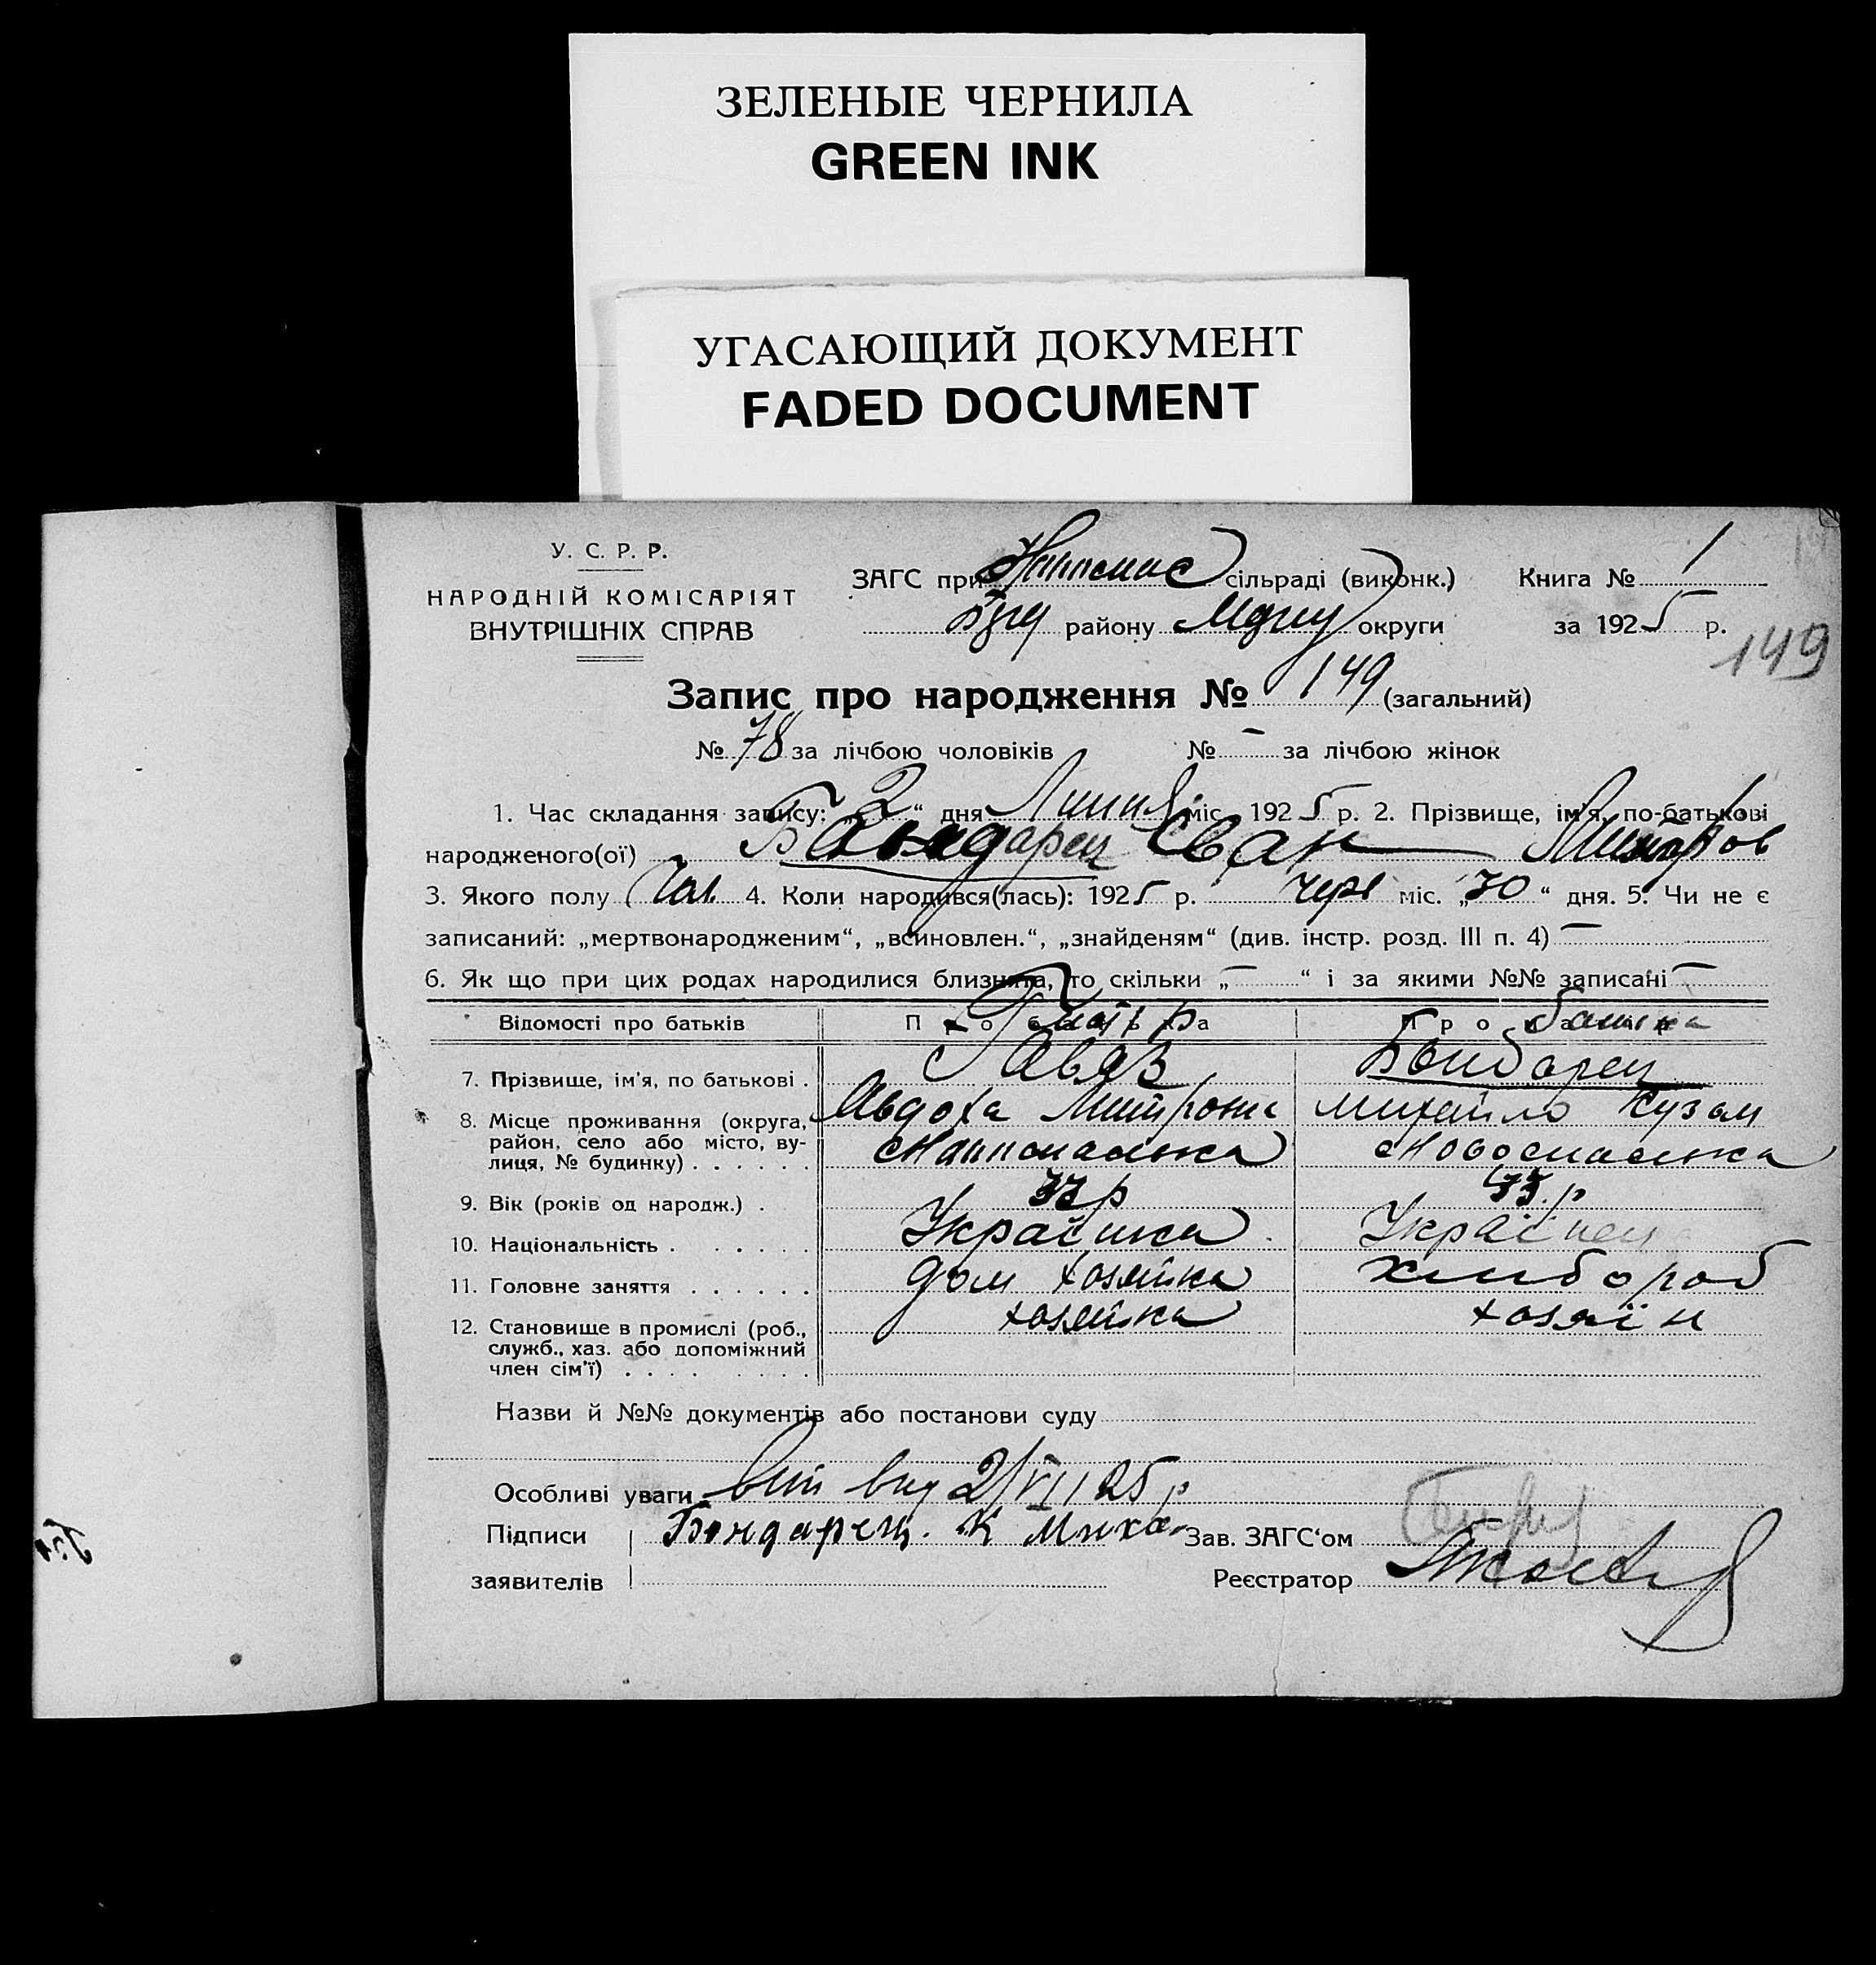 ЗЕЛЕНЫЕ ЧЕРНИЛА
GREEN INK
УГАСАЮЩИЙ ДОКУМЕНТ
FADED DOCUMENT
У. С. Р. Р.
НАРОДНІЙ КОМІСАРІЯТ
ВНУТРІШНІХ СПРАВ
ЗАГС при сільраді (виконк.) Книга № 1
району округи за 1925 р.
149
Запис про народження № 149 (загальний)
№ 78 за лічбою чоловіків № - за лічбою жінок
1. Час складання запису: „2“ дня Липня міс. 1925 р. 2. Прізвище, ім'я, по-батькові
народженого(ої) Бондарец Іван
3. Якого полу Чол. 4. Коли народився(лась): 1925 р. черв міс. „30“ дня. 5. Чи не є
записаний: „мертвонародженим“, „всиновлен.“, „знайденям“ (див. інстр. розд. III п. 4) —
6. Як що при цих родах народилися близнята, то скільки „—“ і за якими №№ записані —
Відомості про батьків Про Про батька
7. Прізвище, ім'я, по батькові . Бондарец
8. Місце проживання (округа, Авдоха Митровна Михайло Кузьм
район, село або місто, ву-
лиця, № будинку) . . . . . . Новоспаська
9. Вік (років од народж.) .
10. Національність . . . . . . Українка Українец
11. Головне заняття . . . . . . дом хозяйка хлібороб
12. Становище в промислі (роб., хозяйка хозяїн
служб., хаз. або допоміжний
член сім'ї) . . . . . . . .
Назви й №№ документів або постанови суду
Особливі уваги 2/VII 25 р
Підписи Бондарец. К Миха Зав. ЗАГС'ом
заявителів Реєстратор